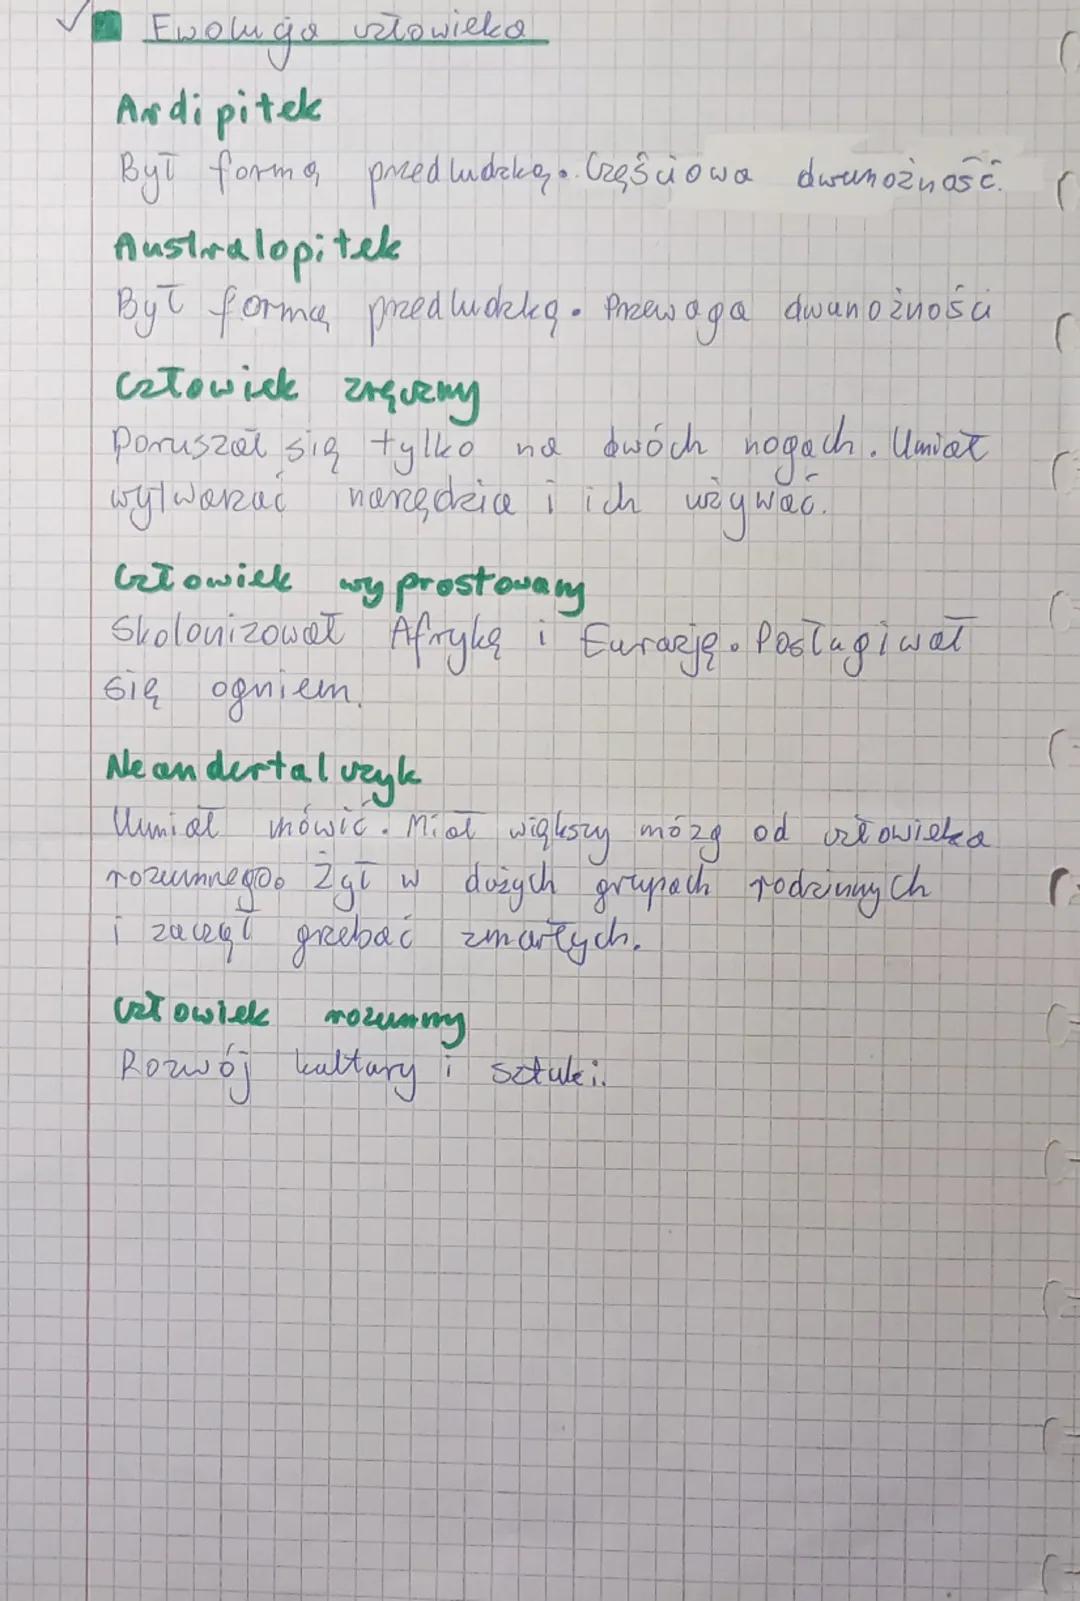 Ewolucja człowieka
Ardipitek
Był formą przedludzką. Częściowa dwunożność.
Australopitek
Był formą przedludzką. Przewaga dwunożności
Człowiek zręczny
Poruszał się tylko na dwóch nogach. Umiał
wytwarzać narzędzia i ich używać.
Człowiek wyprostowany
Skolonizował Afrykę i Eurazję. Posługiwał
się ogniem.
Neandertalczyk
Umiał mówić. Miał większy mózg od człowieka
rozumnego. Żył w dużych grupach rodzinnych
i zaczął grzebać zmarłych.
Człowiek rozumny
Rozwój kultury i sztuki.